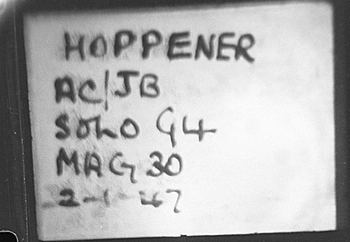 HOPPENER
AC/JB
SOHO G4
MAG 30
2-1-67